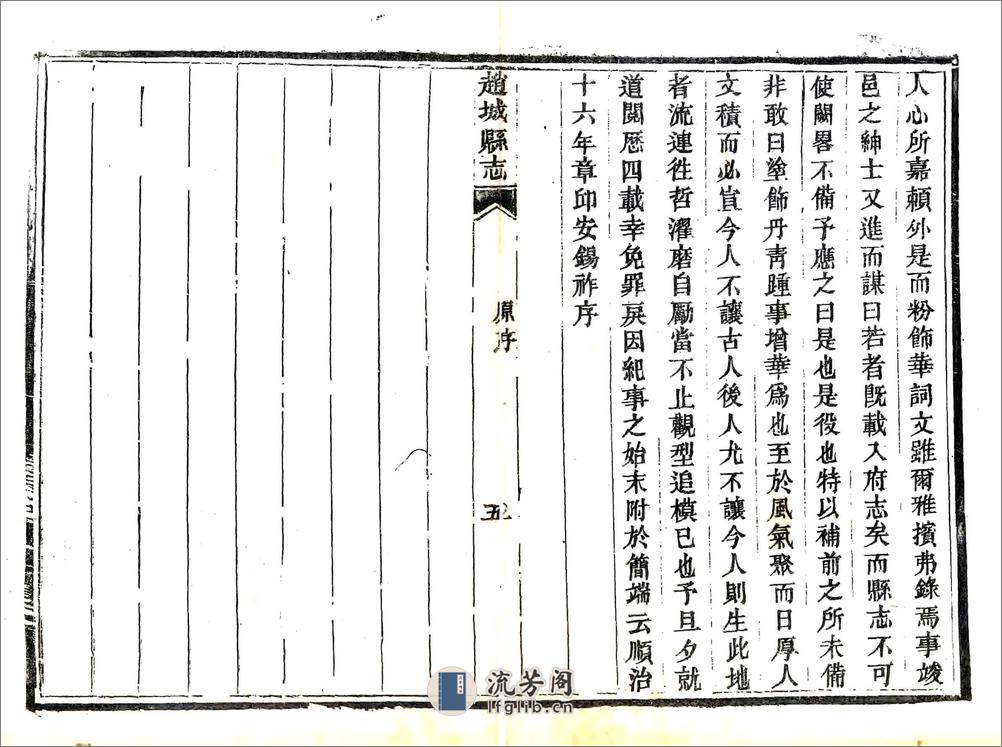 人心所嘉賴外是而粉飾華詞文雖爾雅擯弗錄焉事竣
邑之紳士又進而謀曰若者旣載入府志矣而縣志不可
使闕畧不備予應之曰是也是役也特以補前之所未備
非敢曰塗飾丹靑踵事增華爲也至於風氣聚而日厚人
文積而必宣今人不讓古人後人尤不讓今人則生此地
者流連徃哲濯磨自勵當不止觀型追模已也予旦夕就
道閱歷四載幸免罪戾因紀事之始末附於簡端云順治
十六年章邱安錫祚序
趙城縣志
原序
五
流芳阁
lfglib.cn